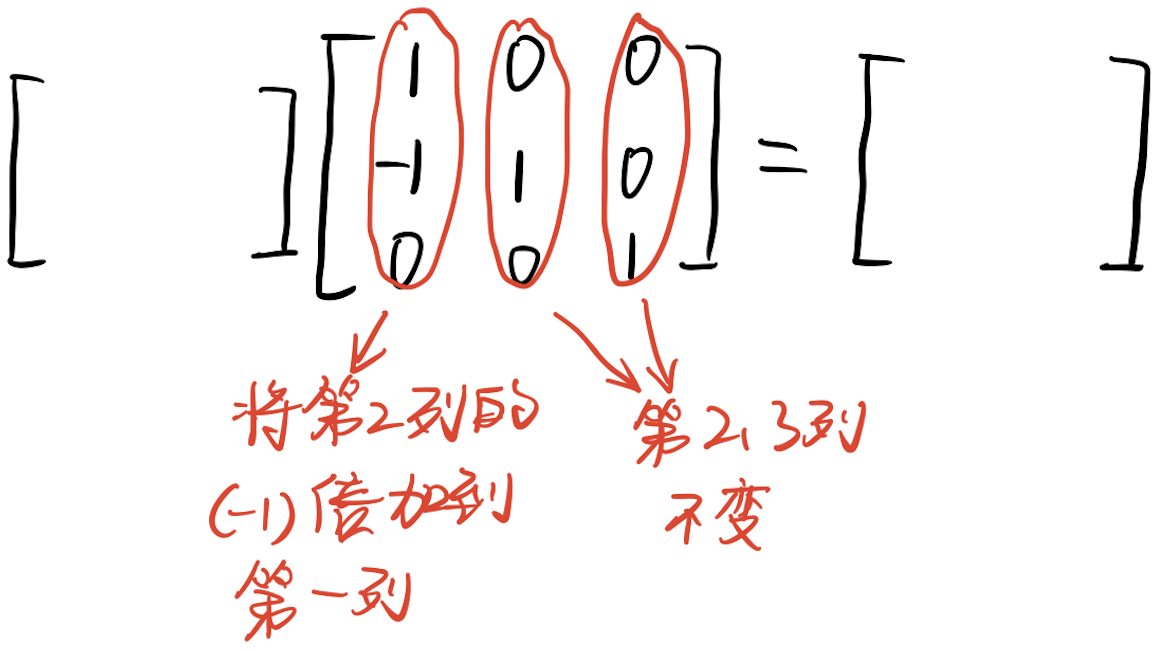 [ ] [ 1 0 0 ] = [ ]
-1 1 0
0 0 1
将第2列的
(-1)倍加到
第一列
第2、3列
不变